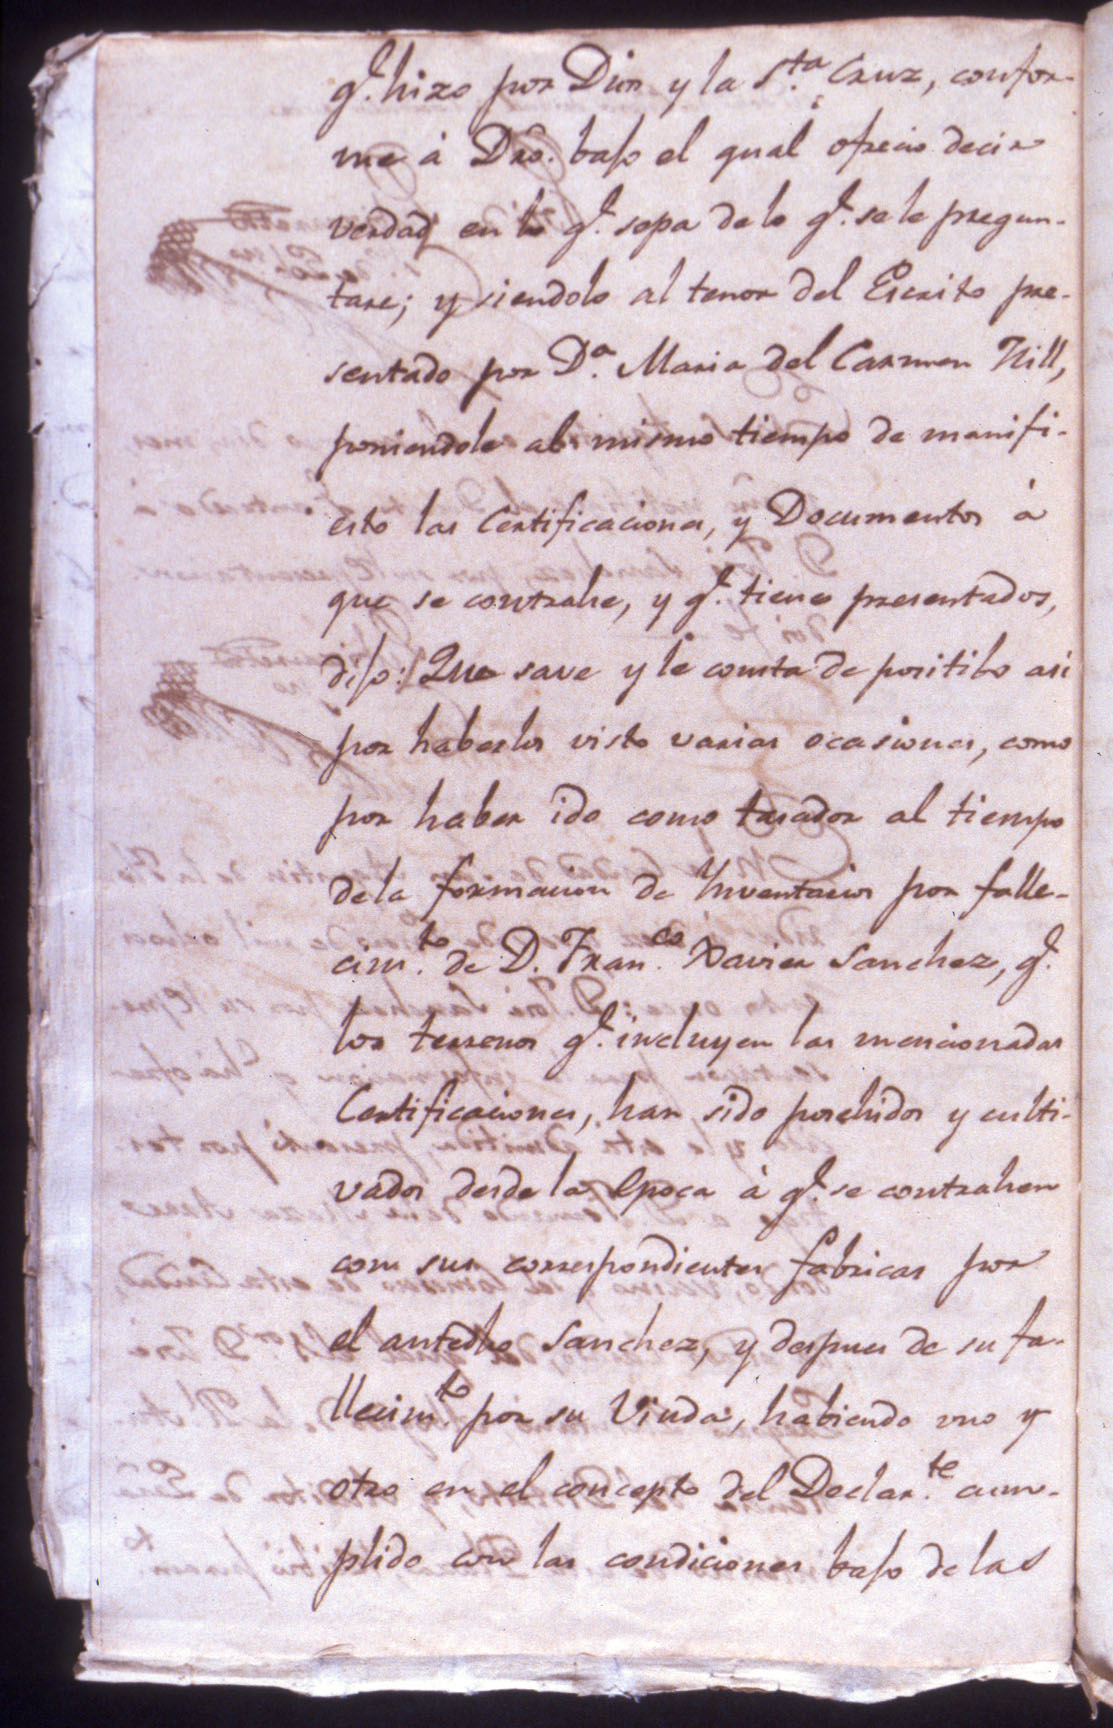 q.e hizo por Dios y la S.ta Cruz, confor-
me á Dro. bajo el qual ofrecio decir
verdad en lo q.e sepa de lo q.e se le pregun-
tare; y siendolo al tenor del Escrito pre-
sentado por D.a Maria del Carmen Hill,
poniendole al mismo tiempo de manifi-
esto las Certificaciones, y Documentos á
que se contrahe, y q.e tiene presentados,
dijo: Que save y le consta de positibo asi
por haberlos visto varias ocasiones, como
por haber ido como tasador al tiempo
dela formacion de Ynventarios por falle-
cim.to de D. Fran.co Xavier Sanchez, q.e
los terrenos q.e incluyen las mencionadas
Certificaciones, han sido posehidos y culti-
vados desde la epoca á q.e se contrahen
con sus correspondientes fabricas por
el antedho Sanchez, y despues de su fa-
llecim.to por su Viuda, habiendo uno y
otro en el concepto del Declar.te cum-
plido con las condiciones bajo de las